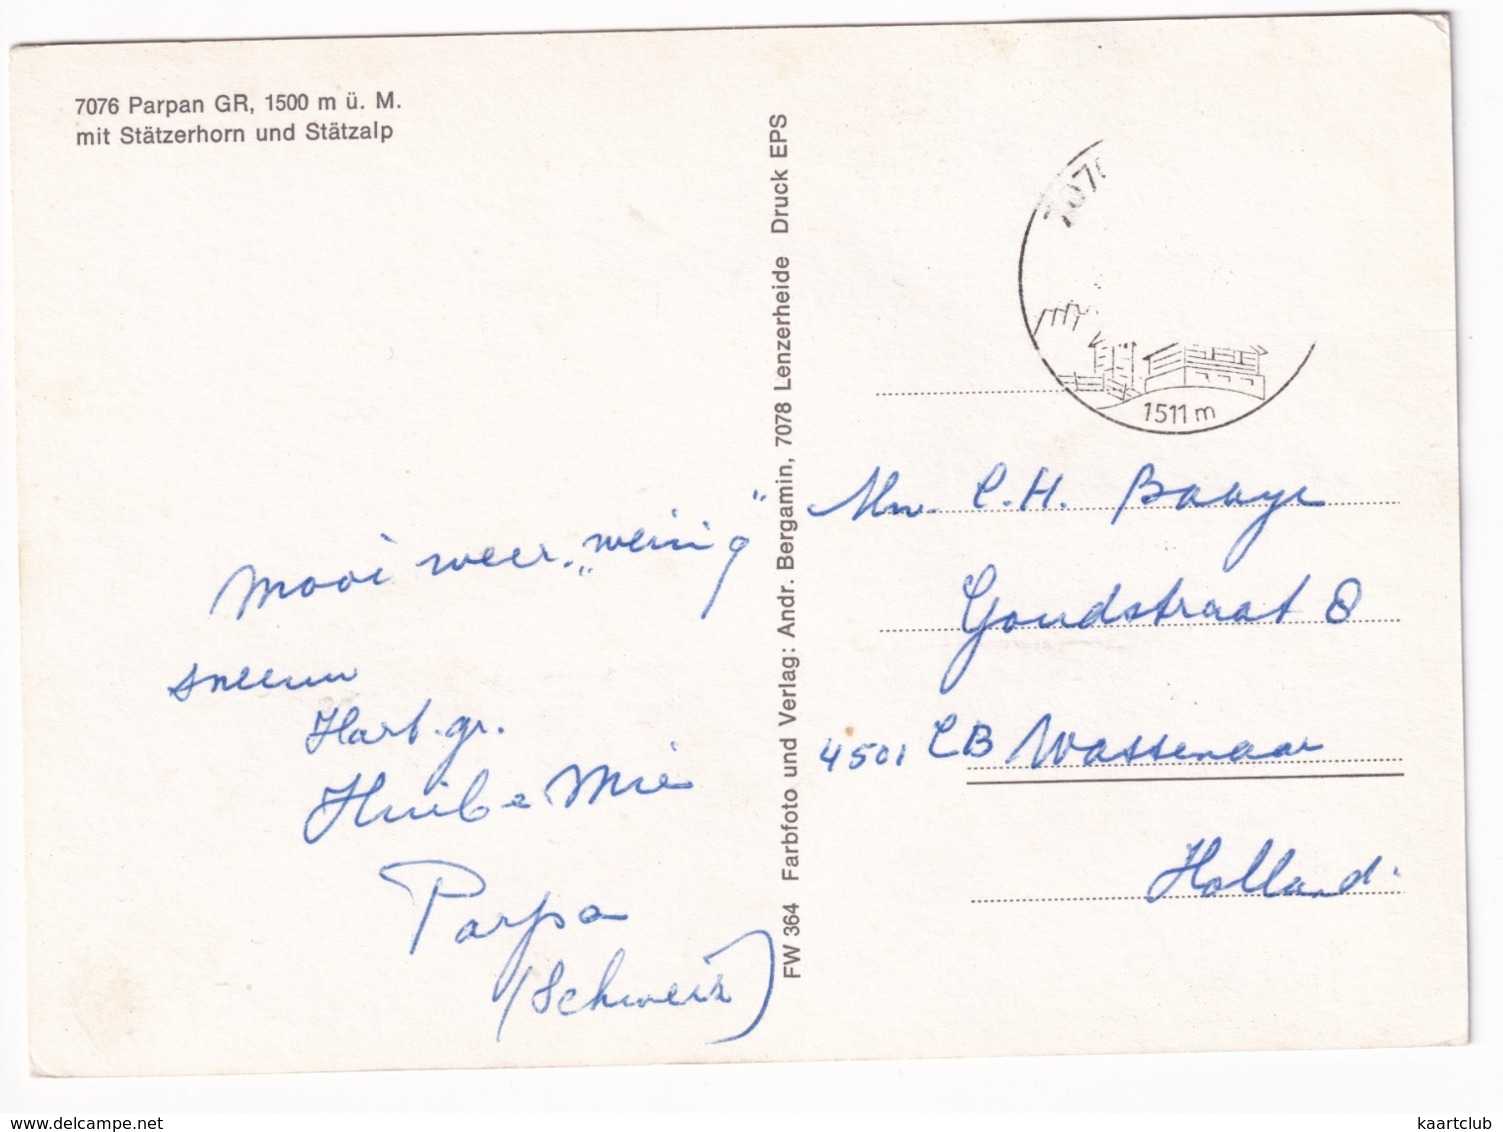 7076 Parpan GR, 1500 m ü. M.
mit Stätzerhorn und Stätzalp
mooi weer. „weinig"
sneeuw
Hart. gr.
Huib e Mie
Parpa
(Schweiz)
FW 364 Farbfoto und Verlag: Andr. Bergamin, 7078 Lenzerheide Druck EPS
1511 m
Mw. C.H. Baaye
Goudstraat 8
4501 CB Wassenaar
Holland.
www.delcampe.net
kaartclub